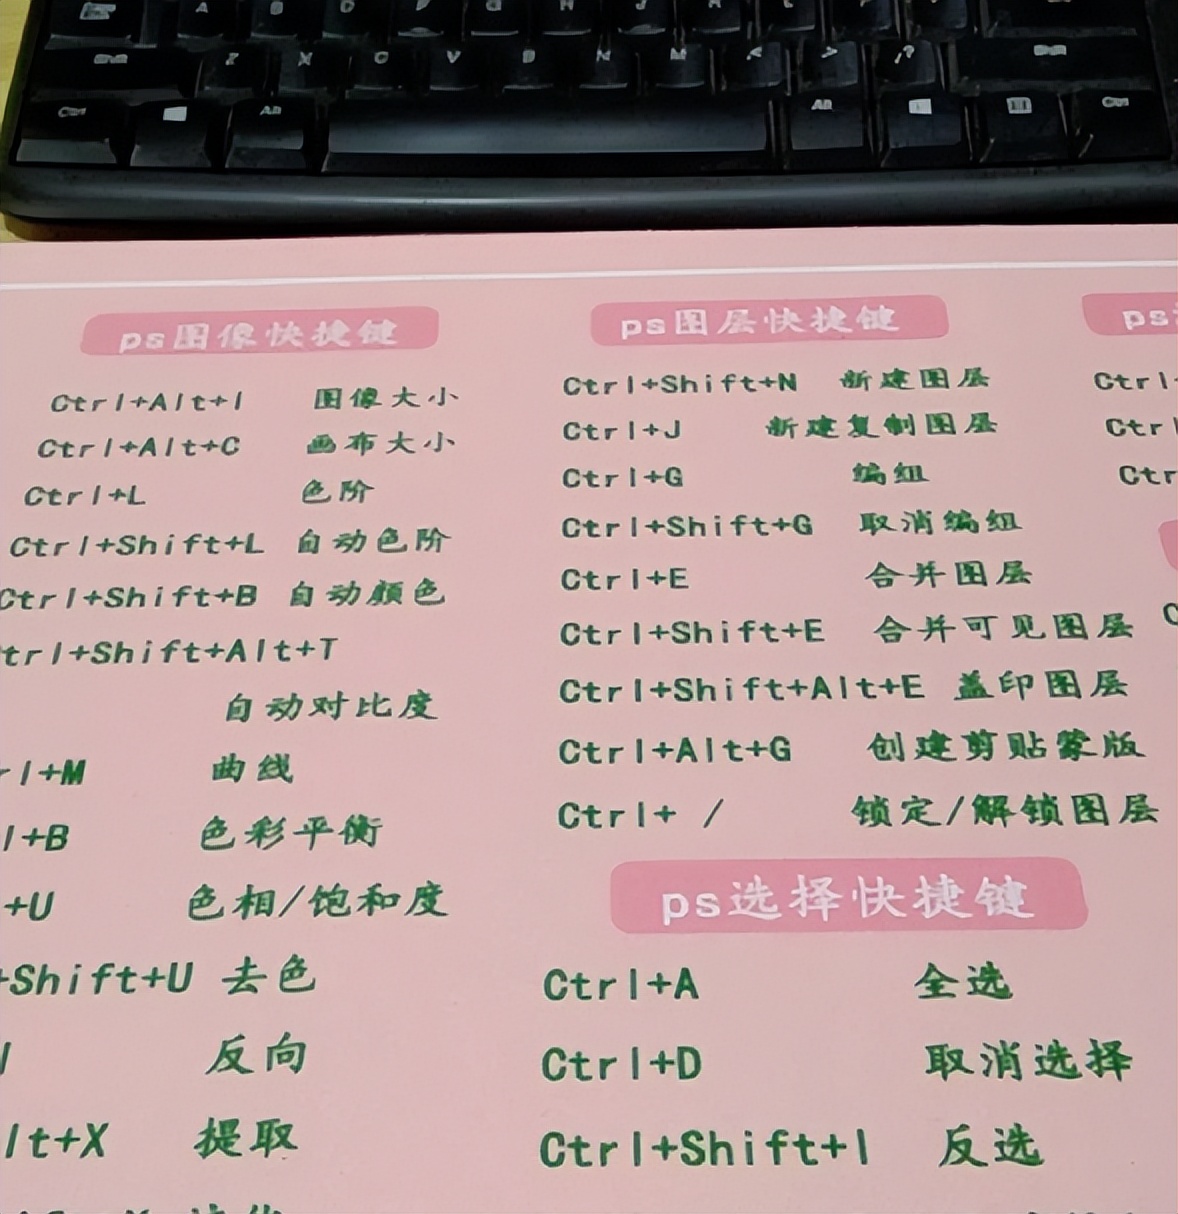 A
Z X C V B N M < > ?
Alt Alt
ps图像快捷键
Ctrl+Alt+I 图像大小
Ctrl+Alt+C 画布大小
Ctrl+L 色阶
Ctrl+Shift+L 自动色阶
Ctrl+Shift+B 自动颜色
trl+Shift+Alt+T
自动对比度
rl+M 曲线
l+B 色彩平衡
+U 色相/饱和度
+Shift+U 去色
反向
lt+X 提取
ps图层快捷键
Ctrl+Shift+N 新建图层
Ctrl+J 新建复制图层
Ctrl+G 编组
Ctrl+Shift+G 取消编组
Ctrl+E 合并图层
Ctrl+Shift+E 合并可见图层
Ctrl+Shift+Alt+E 盖印图层
Ctrl+Alt+G 创建剪贴蒙版
Ctrl+ / 锁定/解锁图层
ps选择快捷键
Ctrl+A 全选
Ctrl+D 取消选择
Ctrl+Shift+I 反选
ps
Ctrl
Ctrl
Ctr